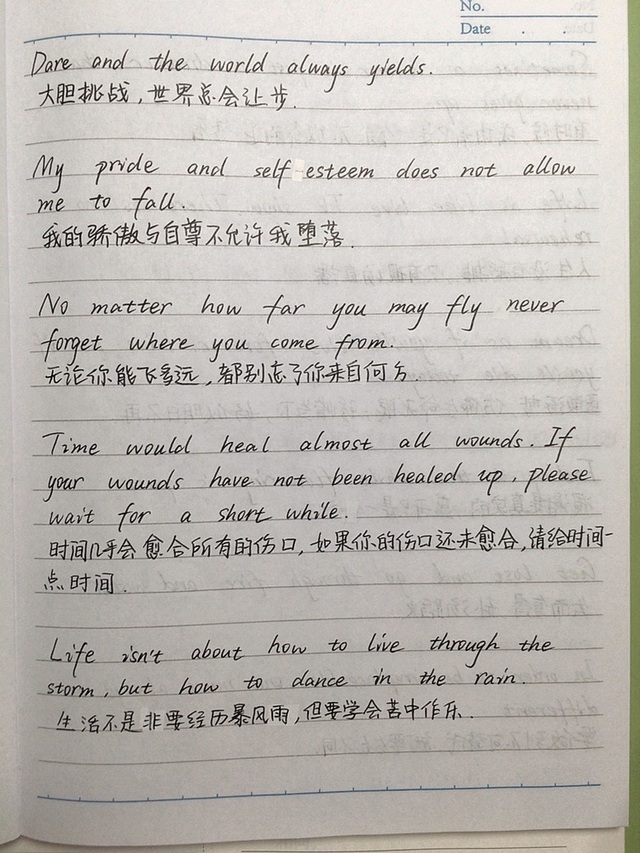 No.
Date . .
Dare and the world always yields.
大胆挑战，世界总会让步.
My pride and self-esteem does not allow
me to fall.
我的骄傲与自尊不允许我堕落.
No matter how far you may fly never
forget where you come from.
无论你能飞多远，都别忘了你来自何方.
Time would heal almost all wounds. If
your wounds have not been healed up, please
wait for a short while.
时间几乎会愈合所有的伤口，如果你的伤口还未愈合，请给时间一
点时间.
Life isn't about how to live through the
storm, but how to dance in the rain.
生活不是非要经历暴风雨，但要学会苦中作乐.